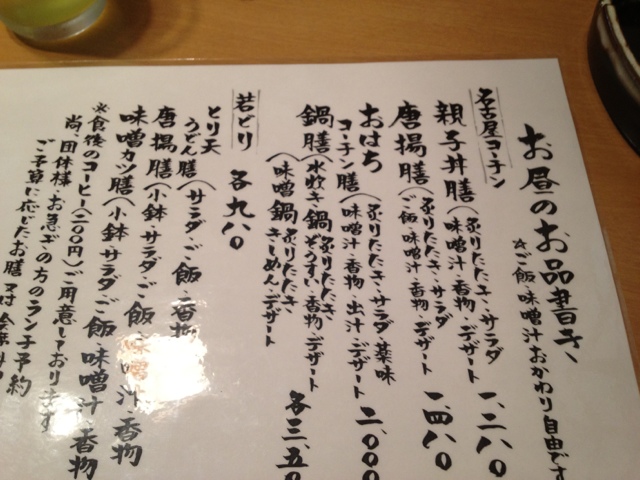 お昼のお品書き
☆ご飯・味噌汁おかわり自由です
名古屋コーチン
親子丼膳(炙りたたき・サラダ
味噌汁・香物・デザート 一、二八〇
唐揚膳(炙りたたき・サラダ
ご飯・味噌汁・香物・デザート 一、四八〇
おはち
コーチン膳(炙りたたき・サラダ・薬味
味噌汁・香物・出汁・デザート 二、〇〇〇
鍋膳(水炊き鍋 炙りたたき
ぞうすい・香物・デザート
(味噌鍋 炙りたたき
きしめん・デザート 各三、五〇
若どり 各九八〇
とり天
うどん膳(サラダ・ご飯・香物
唐揚膳(小鉢・サラダ・ご飯・味噌汁・香物
味噌カツ膳(小鉢・サラダ・ご飯・味噌汁・香物
※食後のコーヒー(二〇〇円)ご用意しております
尚、団体様・お急ぎの方のランチ予約
ご予算に応じたお膳